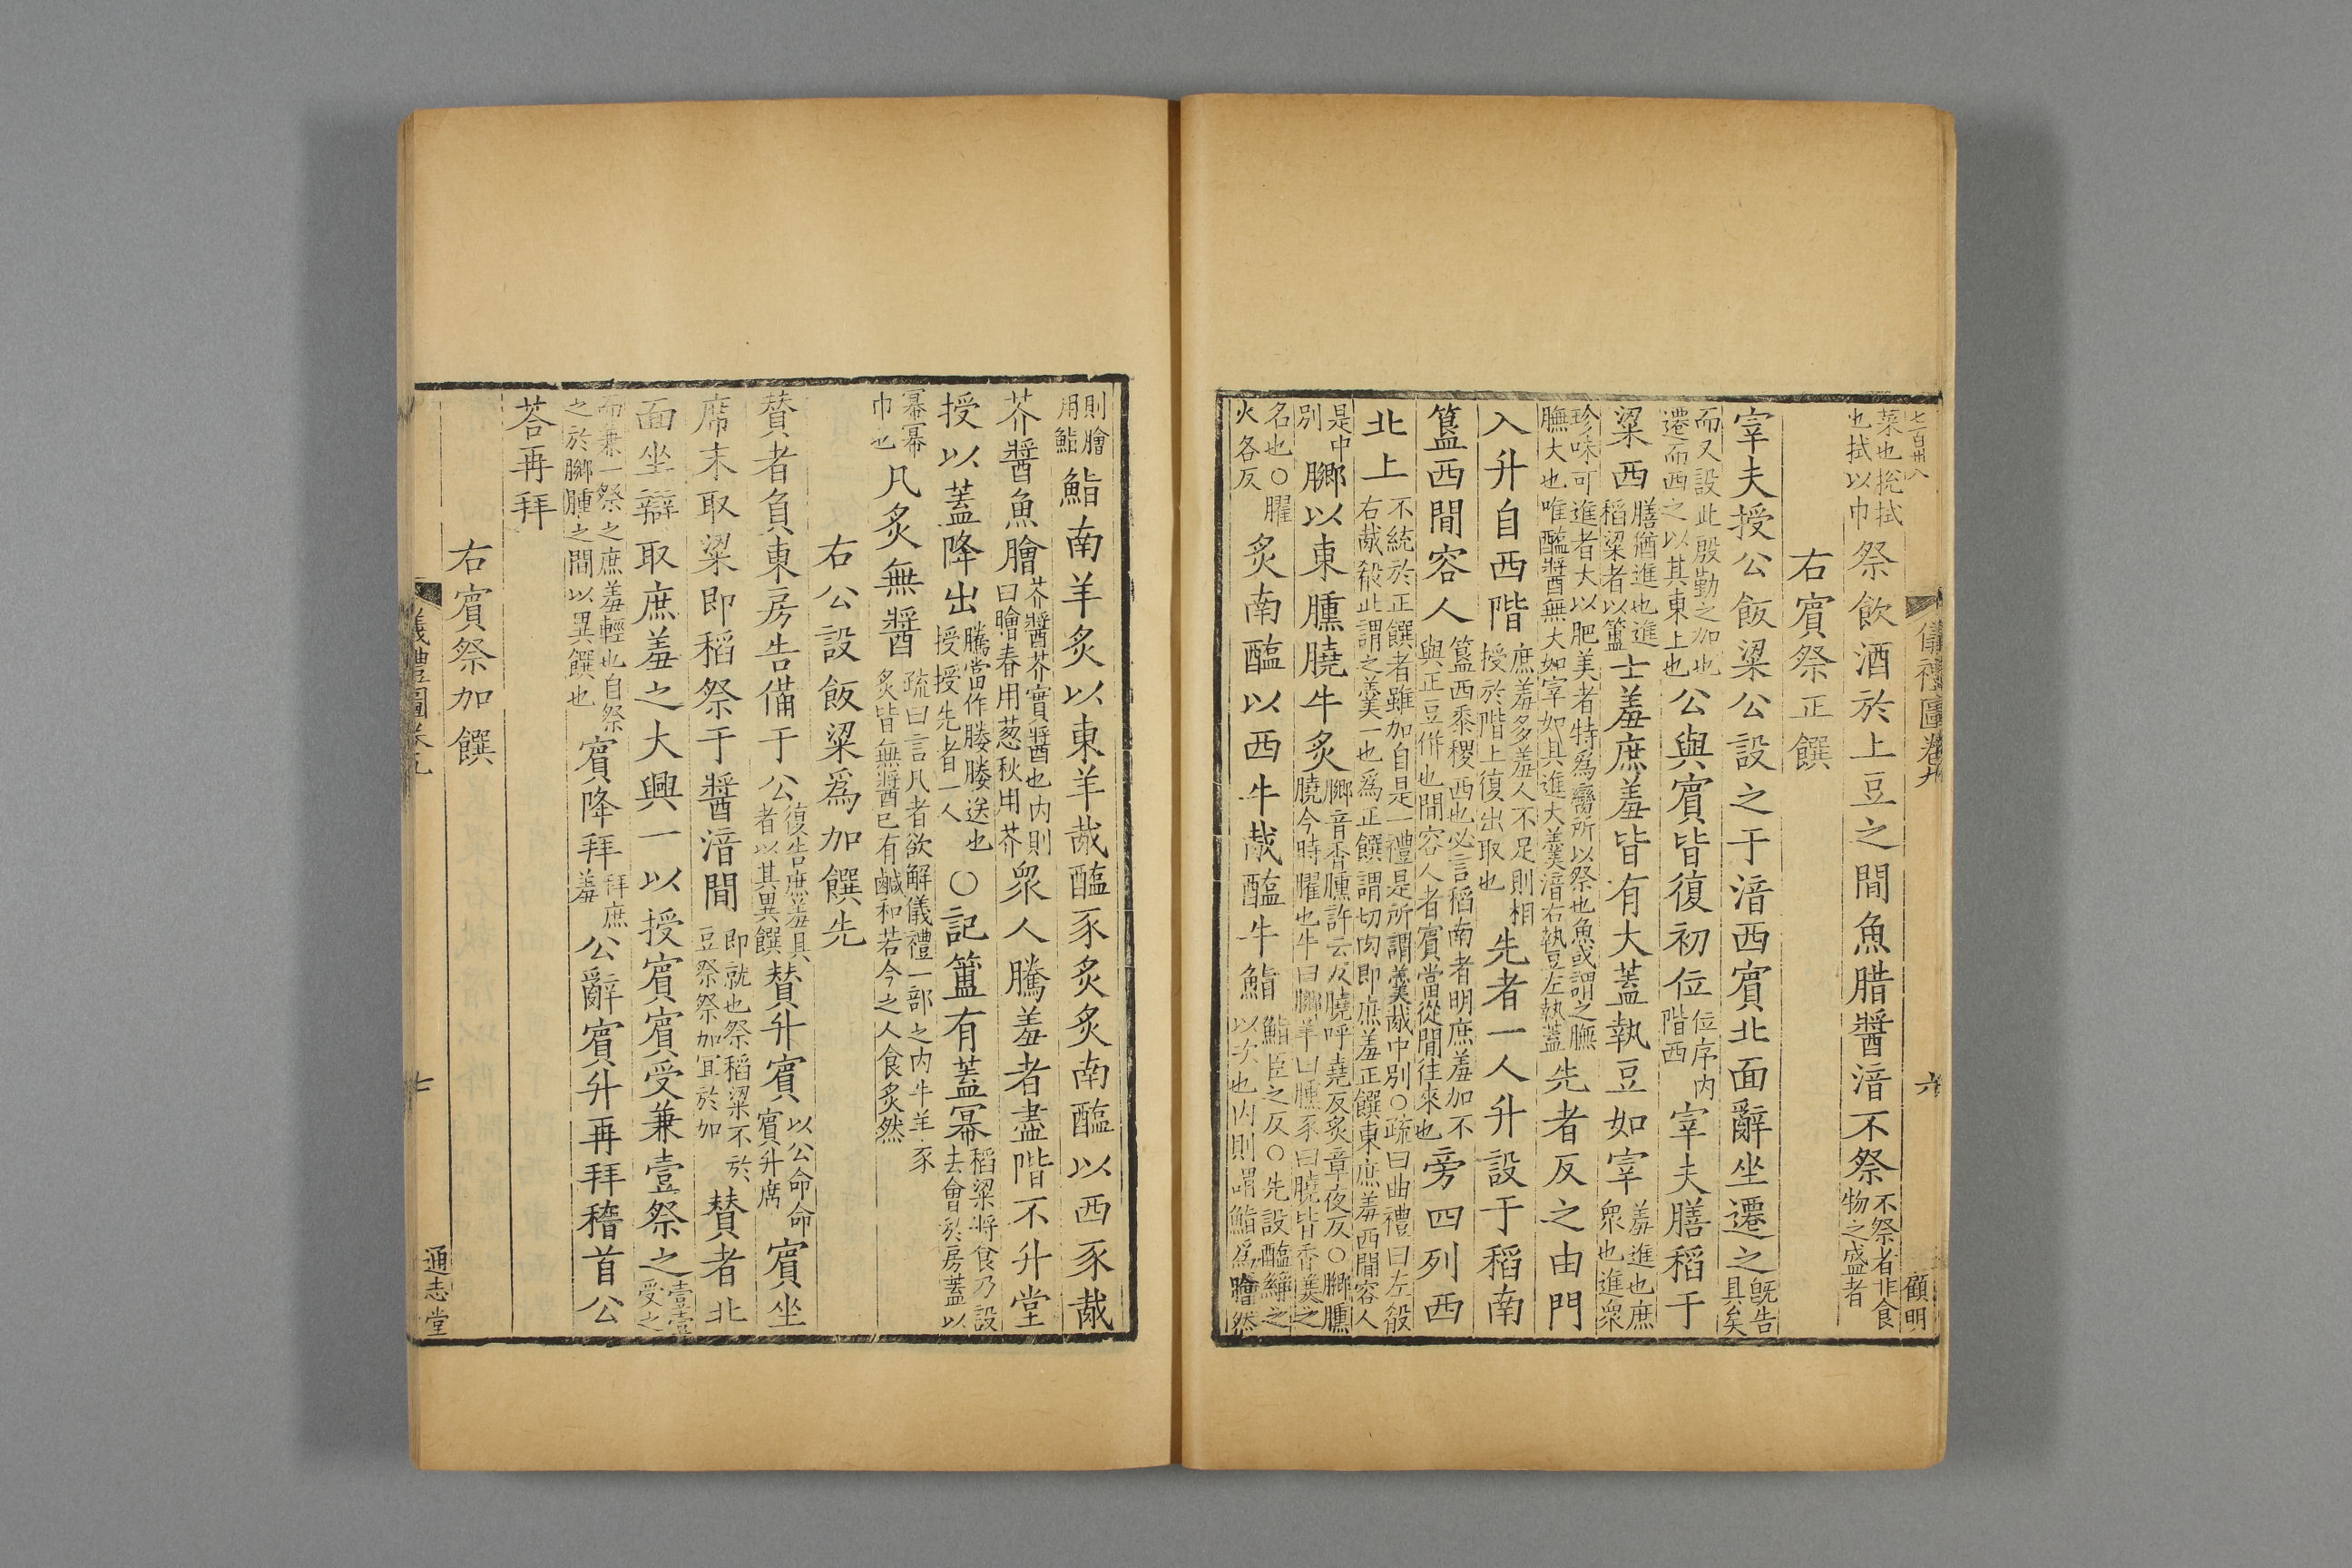 七百卅八
儀禮圖卷九
六
顧明
菜也挩拭
也拭以巾
祭飲酒於上豆之間魚腊醬湆不祭
不祭者非食
物之盛者
右賓祭正饌
宰夫授公飯粱公設之于湆西賓北面辭坐遷之
旣告
具矣
而又設此殷勤之加也
遷而西之以其東上也
公與賓皆復初位
位序內
階西
宰夫膳稻于
粱西
膳猶進也進
稻粱者以簠
士羞庶羞皆有大蓋執豆如宰
羞進也庶
衆也進衆
珍味可進者大以肥美者特爲臠所以祭也魚或謂之膴
膴大也唯醢醬無大如宰如其進大羹湆右執豆左執蓋
先者反之由門
入升自西階
庶羞多羞人不足則相
授於階上復出取也
先者一人升設于稻南
簋西間容人
簋西黍稷西也必言稻南者明庶羞加不
與正豆併也間容人者賓當從間往來也
旁四列西
北上
不統於正饌者雖加自是一禮是所謂羹胾中別○疏曰曲禮曰左殽
右胾殽此謂之羹一也爲正饌謂切肉即庶羞正饌東庶羞西間容人
是中
別
膷以東臐膮牛炙
膷音香臐許云反膮呼堯反炙章夜反○膷臐
膮今時臛也牛曰膷羊曰臐豕曰膮皆香美之
名也○臛
火各反
炙南醢以西牛胾醢牛鮨
鮨臣之反○先設醢綪之
以次也內則謂鮨爲膾然
則膾
用鮨
鮨南羊炙以東羊胾醢豕炙炙南醢以西豕胾
芥醬魚膾
芥醬芥實醬也內則
曰膾春用葱秋用芥
衆人騰羞者盡階不升堂
授以蓋降出
騰當作媵媵送也
授授先者一人
○記簠有蓋冪
稻粱將食乃設
去會於房蓋以
冪冪
巾也
凡炙無醬
疏曰言凡者欲解儀禮一部之內牛羊豕
炙皆無醬已有鹹和若今之人食炙然
右公設飯粱爲加饌先
贊者負東房告備于公
復告庶羞具
者以其異饌
贊升賓
以公命命
賓升席
賓坐
席末取粱即稻祭于醬湆間
即就也祭稻粱不於
豆祭祭加宜於加
贊者北
面坐辯取庶羞之大興一以授賓賓受兼壹祭之
壹壹
受之
而兼一祭之庶羞輕也自祭
之於膷臐之間以異饌也
賓降拜
拜庶
羞
公辭賓升再拜稽首公
荅再拜
右賓祭加饌
儀禮圖卷九
七
通志堂